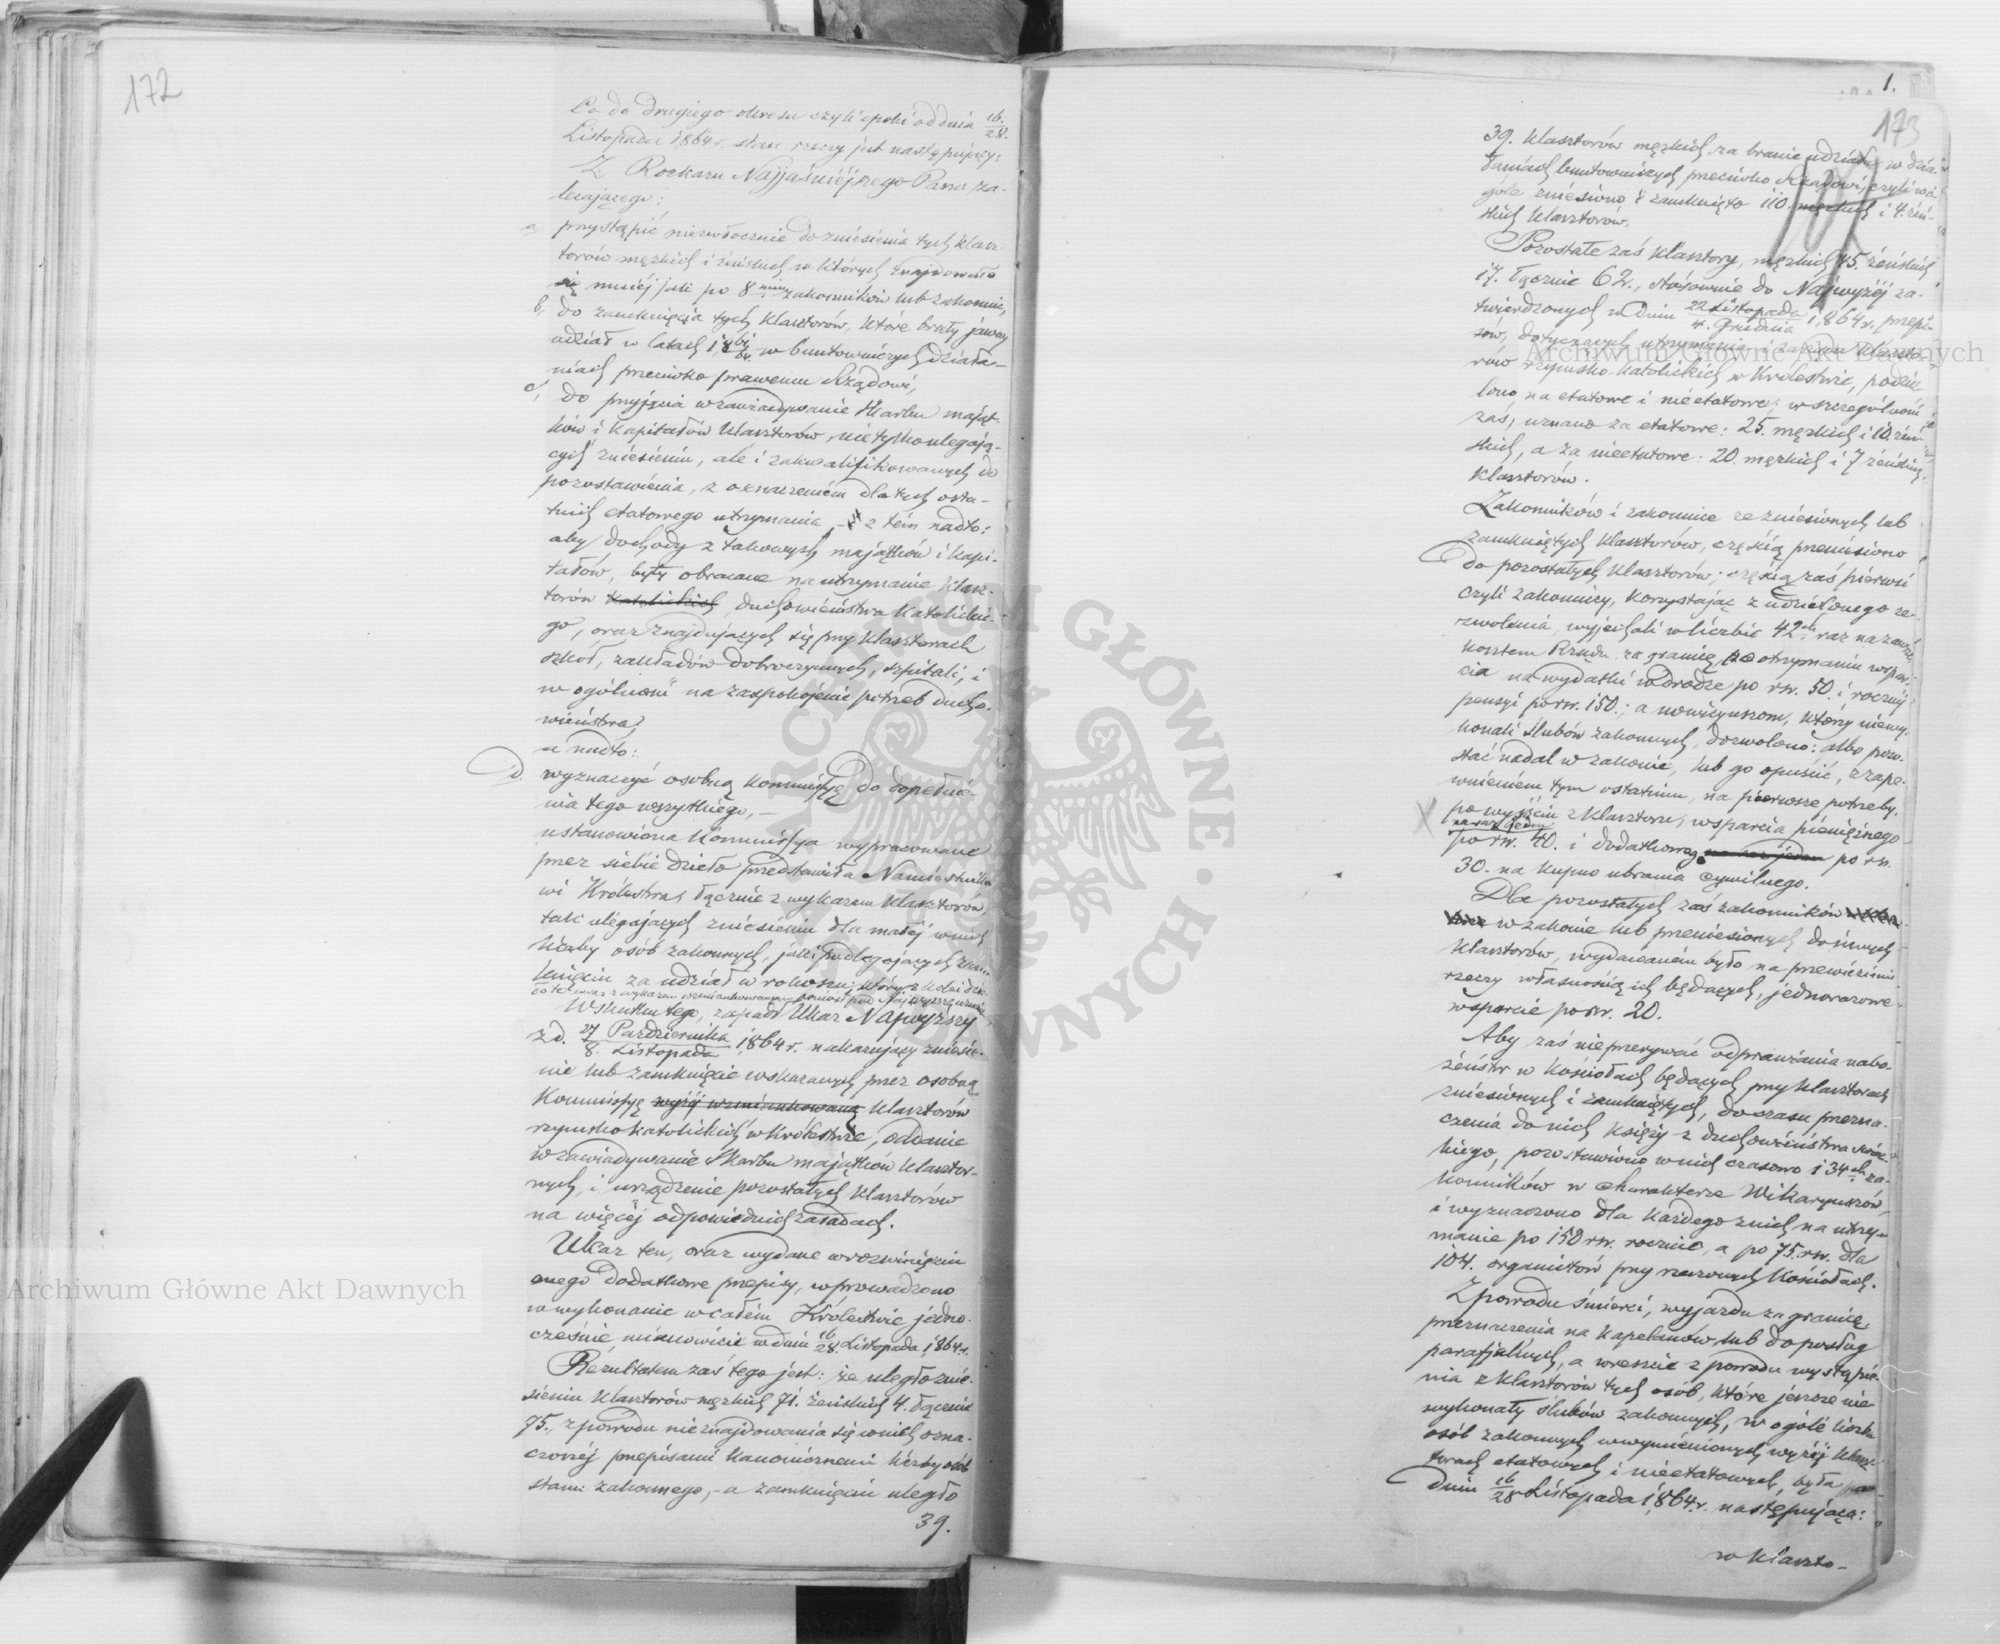 172
Co do drugiego okresu czyli epoki od dnia 16/28.
Listopada 1864 r. stan rzeczy jest następujący:
Z Rozkazu Najjaśniéjszego Pana za-
lecającego:
a, przystąpić niezwłocznie do zniesienia tych klasz-
torów męzkich i żeńskich w których znajdowało
się mniéj jak po 8miu zakonników lub zakonnic,
b, do zamknięcia tych Klasztorów, które brały jawny
udział w latach 1863/64. w buntowniczych działa-
niach przeciwko prawemu Rządowi,
c, do przyjęcia w zawiadywanie Skarbu mająt-
ków i kapitałów Klasztorów, nietylko ulegają-
cych zniesieniu, ale i zakwalifikowanych do
pozostawienia, z oznaczeniem dla tych osta-
tnich etatowego utrzymania, – z tém nadto:
aby dochody z takowych majątków i kapi-
tałów, były obracane na utrzymanie Klasz-
torów Katolickich, duchowieństwa Katolickie-
go, oraz znajdujących się przy Klasztorach
szkół, zakładów dobroczynnych, szpitali, i
w ogólności na zaspokojenie potrzeb ducho-
wieństwa,
a nadto:
d. wyznaczyć osobną Kommissyę do dopełnie-
nia tego wszystkiego, –
ustanowiona Kommissya wypracowane
przez siebie dzieło przedstawiła Namiestniko-
wi Królestwa, łącznie z wykazem Klasztorów,
tak ulegających zniesieniu dla małéj w nich
liczby osób zakonnych, jak podlegających zam-
knięciu za udział w rokoszu; który z kolei dzie-
ło to wraz z wykazem wzmiankowanym poniósł pod Najwyższe uznanie
W skutku tego, zapadł Ukaz Najwyższy
z d. 27 Października / 8. Listopada 1864 r. nakazujący zniesie-
nie lub zamknięcie wskazanych przez osobną
Kommissyę wyżéj wzmiankowaną Klasztorów
rzymsko katolickich w Królestwie, oddanie
w zawiadywanie Skarbu majątków klasztor-
nych, i urządzenie pozostałych Klasztorów
na więcéj odpowiednich zasadach.
Ukaz ten, oraz wydane w rozwinięciu
onego dodatkowe przepisy, wprowadzono
w wykonanie w całém Królestwie jedno-
cześnie mianowicie w dniu 16/28. Listopada 1864 r.
Rezultatem zaś tego jest: że uległo znie-
sieniu klasztorów męzkich 71. żeńskich 4. łącznie
75., z powodu nieznajdowania się w nich ozna-
czonéj przepisami kanonicznemi liczby osób
stanu zakonnego, – a zamknięciu uległo
39.
1.
173
39. klasztorów męzkich, za branie udziału w dzia-
łaniach buntowniczych przeciwko Rządowi, czyli w o-
góle zniesiono i zamknięto 110. męzkich i 4. żeń-
skich klasztorów.
Pozostałe zaś klasztory, męzkich 45. żeńskich
17. łącznie 62., stósownie do Najwyżéj za-
twierdzonych w dniu 22 Listopada / 4. Grudnia 1864 r. przepi-
sów, dotyczących utrzymania i zarządu klaszto-
rów rzymsko-katolickich w Królestwie, podzie-
lono na etatowe i nieetatowe; w szczególności
zaś, uznano za etatowe: 25. męzkich i 10. żeń-
skich, a za nieetatowe: 20. męzkich i 7 żeńskich
klasztorów.
Zakonników i zakonnice ze zniesionych lub
zamkniętych klasztorów, częścią przeniesiono
do pozostałych klasztorów; częścią zaś pierwsi
czyli zakonnicy, korzystając z udzielonego ze-
zwolenia wyjechali w liczbie 42ch raz na zawsze
kosztem Rządu za granicę, po otrzymaniu wspar-
cia na wydatki w drodze po rsr. 50. i rocznéj
pensyi po rsr. 150.; a nowicyuszom, którzy niewy-
konali ślubów zakonnych, dozwolono: albo pozo-
stać nadal w zakonie, lub go opuścić, z zape-
wnieniem tym ostatnim, na pierwsze potrzeby,
po wyjściu z klasztoru, wsparcia pieniężnego
na raz jeden
po rsr. 40. i dodatkowo na raz jeden po rsr.
30. na kupno ubrania cywilnego.
Dla pozostałych zaś zakonników
w zakonie lub przeniesionych do innych
klasztorów, wydawaném było na przewiezienie
rzeczy własnością ich będących, jednorazowe
wsparcie po rsr. 20.
Aby zaś nieprzerywać odprawiania nabo-
żeństw w kościołach będących przy klasztorach
zniesionych i zamkniętych, do czasu przezna-
czenia do nich księży z duchowieństwa świec-
kiego, pozostawiono w nich czasowo 134ch za-
konników w charakterze Wikaryuszów,
i wyznaczono dla każdego z nich na utrzy-
manie po 150 rsr. rocznie, a po 75. rsr. dla
104. organistów przy rzeczonych kościołach.
Z powodu śmierci, wyjazdu za granicę,
przeznaczenia na kapelanów lub do posług
parafjalnych, a wreszcie z powodu wystąpie-
nia z klasztorów tych osób, które jeszcze nie
wykonały ślubów zakonnych, w ogóle liczba
osób zakonnych w wymienionych wyżéj klasz-
torach etatowych i nieetatowych, była po
dniu 16/28 Listopada 1864 r. następująca:
w klaszto-
Archiwum Główne Akt Dawnych
Archiwum Główne Akt Dawnych
ARCHIWUM GŁÓWNE AKT DAWNYCH